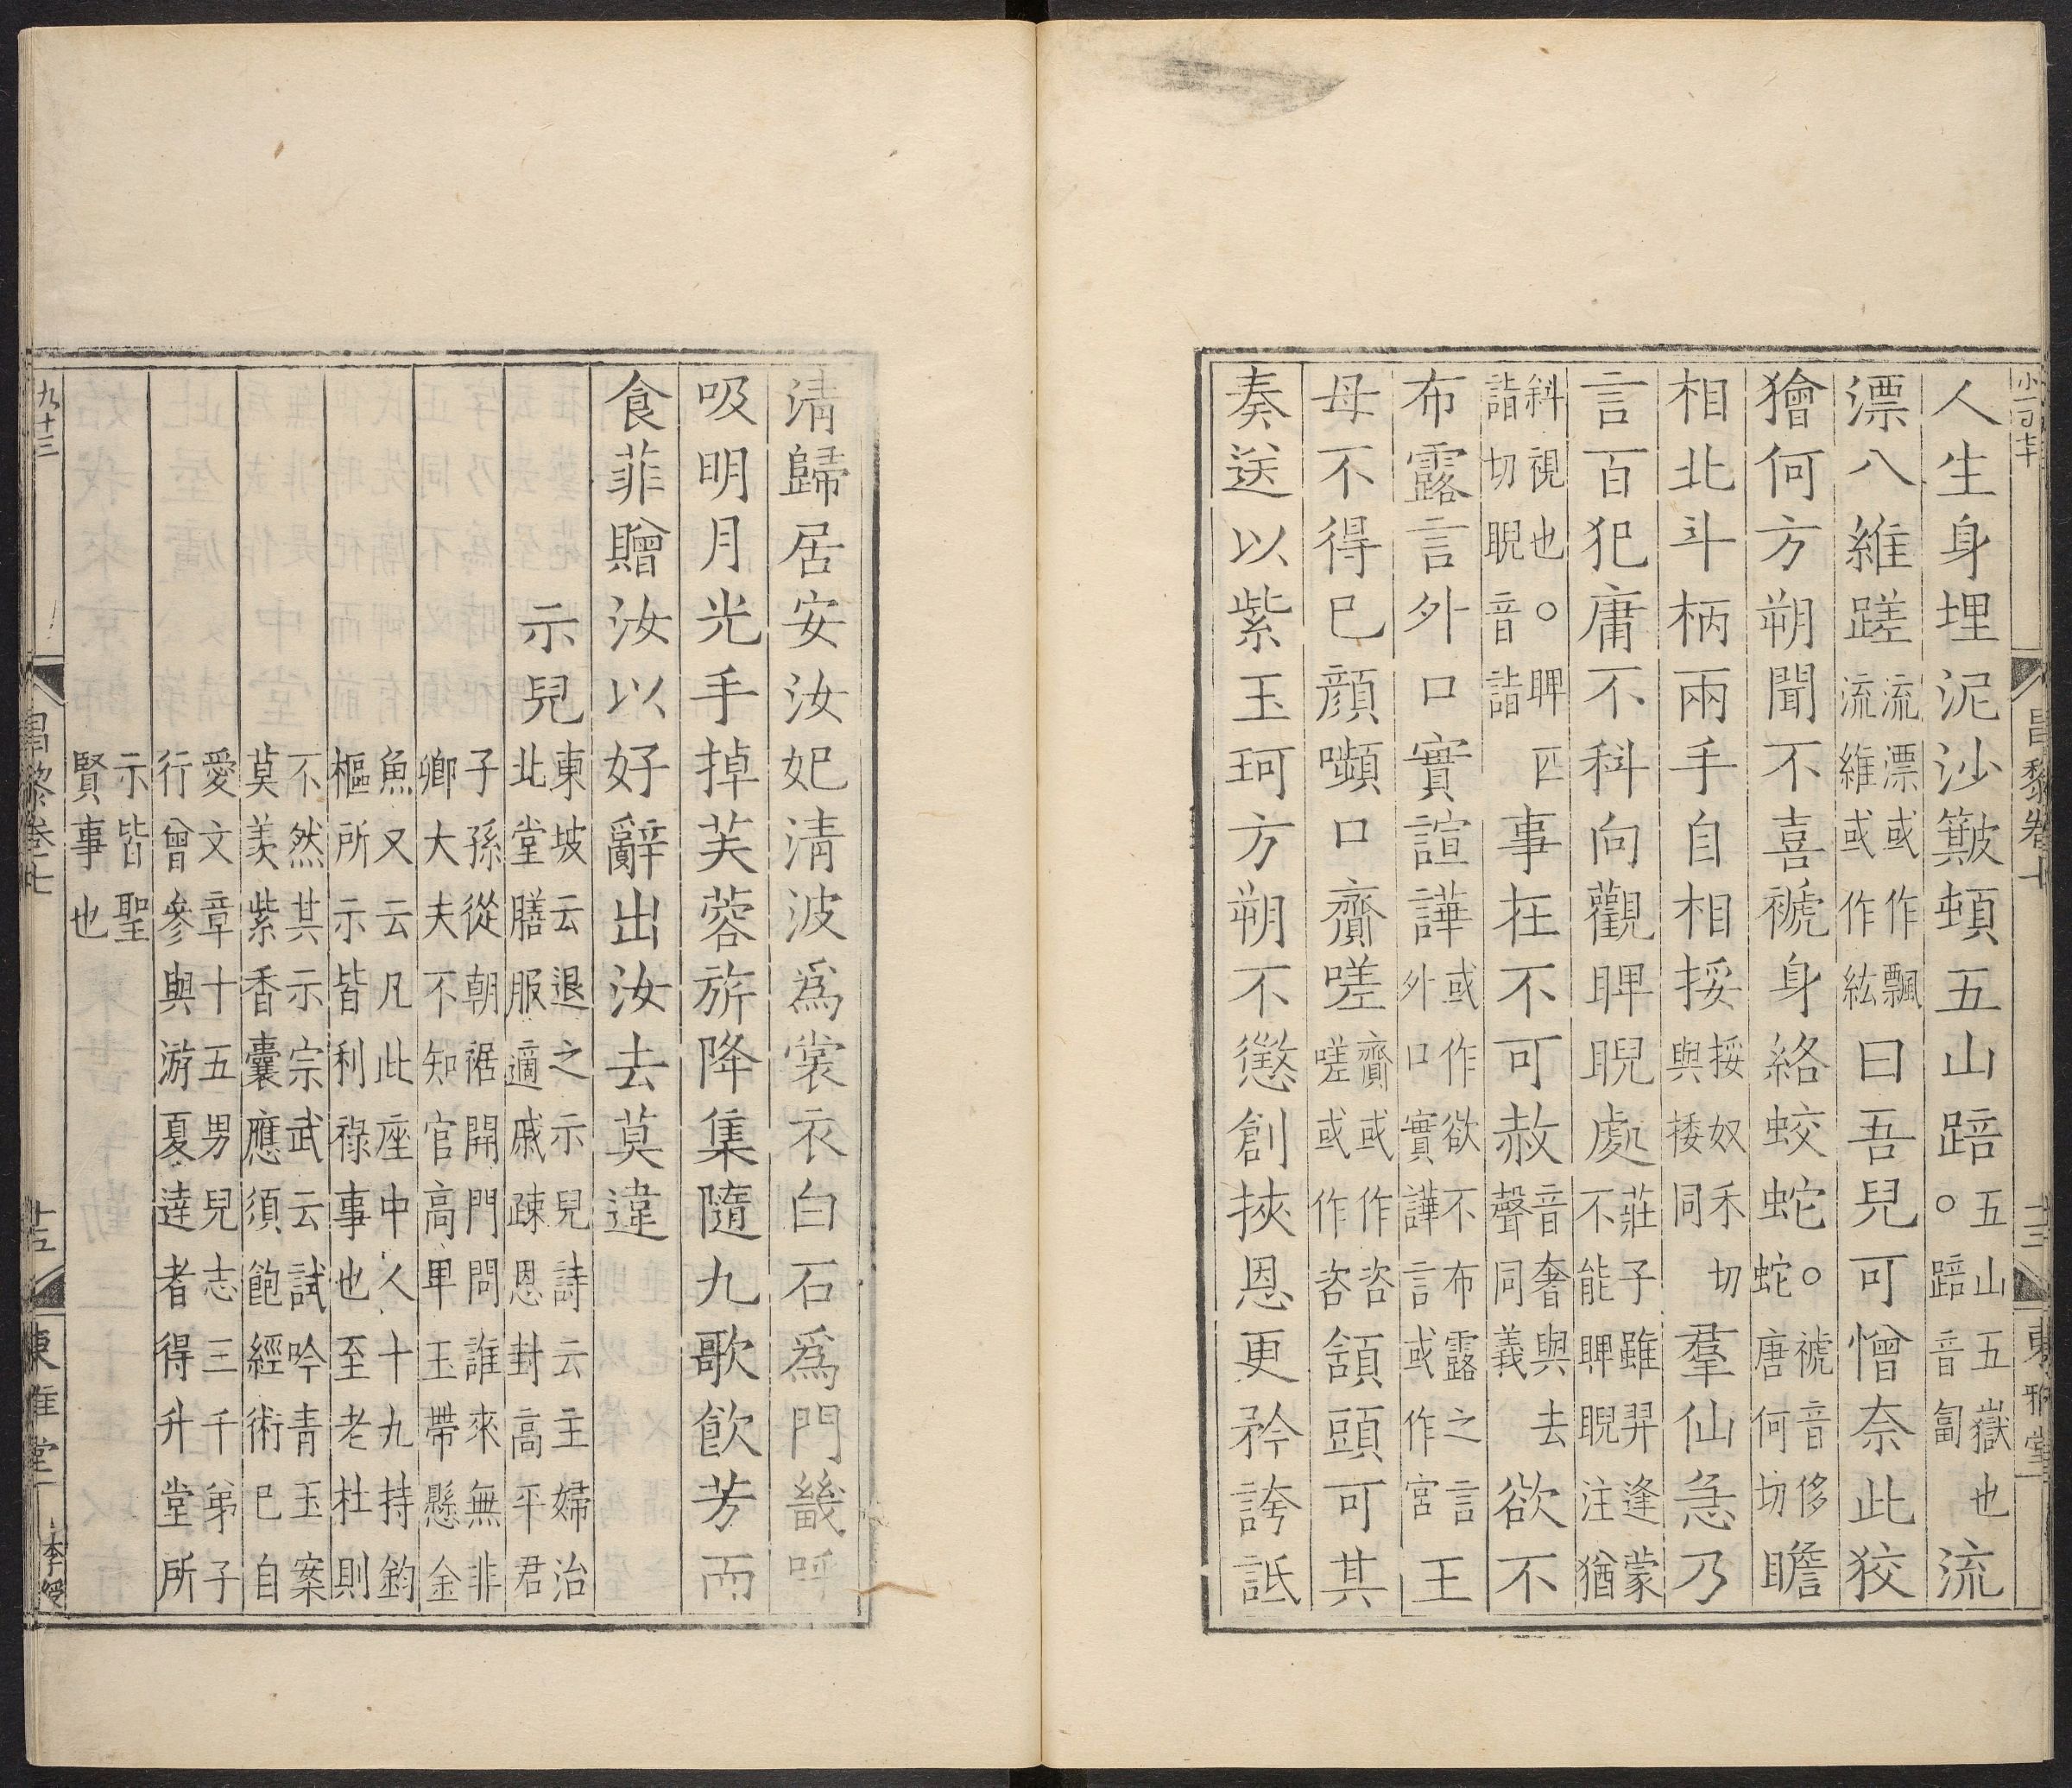 昌黎卷七 十三 東雅堂
人生身埋泥沙簸頓五山踣五山五嶽也。踣音匐流
漂八維蹉流漂或作飄流維或作紘曰吾兒可憎奈此狡
獪何方朔聞不喜褫身絡蛟蛇。褫音侈蛇唐何切瞻
相北斗柄兩手自相挼挼奴禾切與捼同羣仙急乃
言百犯庸不科向觀睥睨處莊子雖羿逢蒙不能睥睨注猶
斜視也。睥匹詣切睨音詣事在不可赦音奢與去聲同義欲不
布露言外口實諠譁或作欲不布露之言外口實譁言或作宮王
母不得已顏嚬口齎嗟齎或作咨嗟或作咨頷頭可其
奏送以紫玉珂方朔不懲創挾恩更矜誇詆
清歸居安汝妃清波爲裳衣白石爲門畿呼
吸明月光手掉芙蓉旂降集隨九歌飲芳而
食菲贈汝以好辭出汝去莫違
示兒東坡云退之示兒詩云主婦治北堂膳服適戚疎恩封高平君
子孫從朝裾開門問誰來無非卿大夫不知官高卑玉帶懸金
魚又云凡此座中人十九持鈞樞所示皆利祿事也至老杜則
不然其示宗武云試吟青玉案莫羨紫香囊應須飽經術已自
愛文章十五男兒志三千弟子行曾參與游夏達者得升堂所
示皆聖賢事也
九十三 昌黎卷七 十五 東雅堂